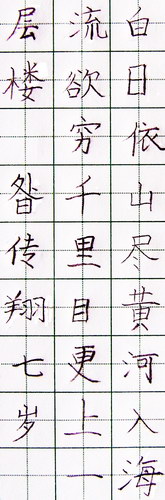 白日依山尽黄河入海
流欲穷千里目更上一
层楼 昝传翔七岁